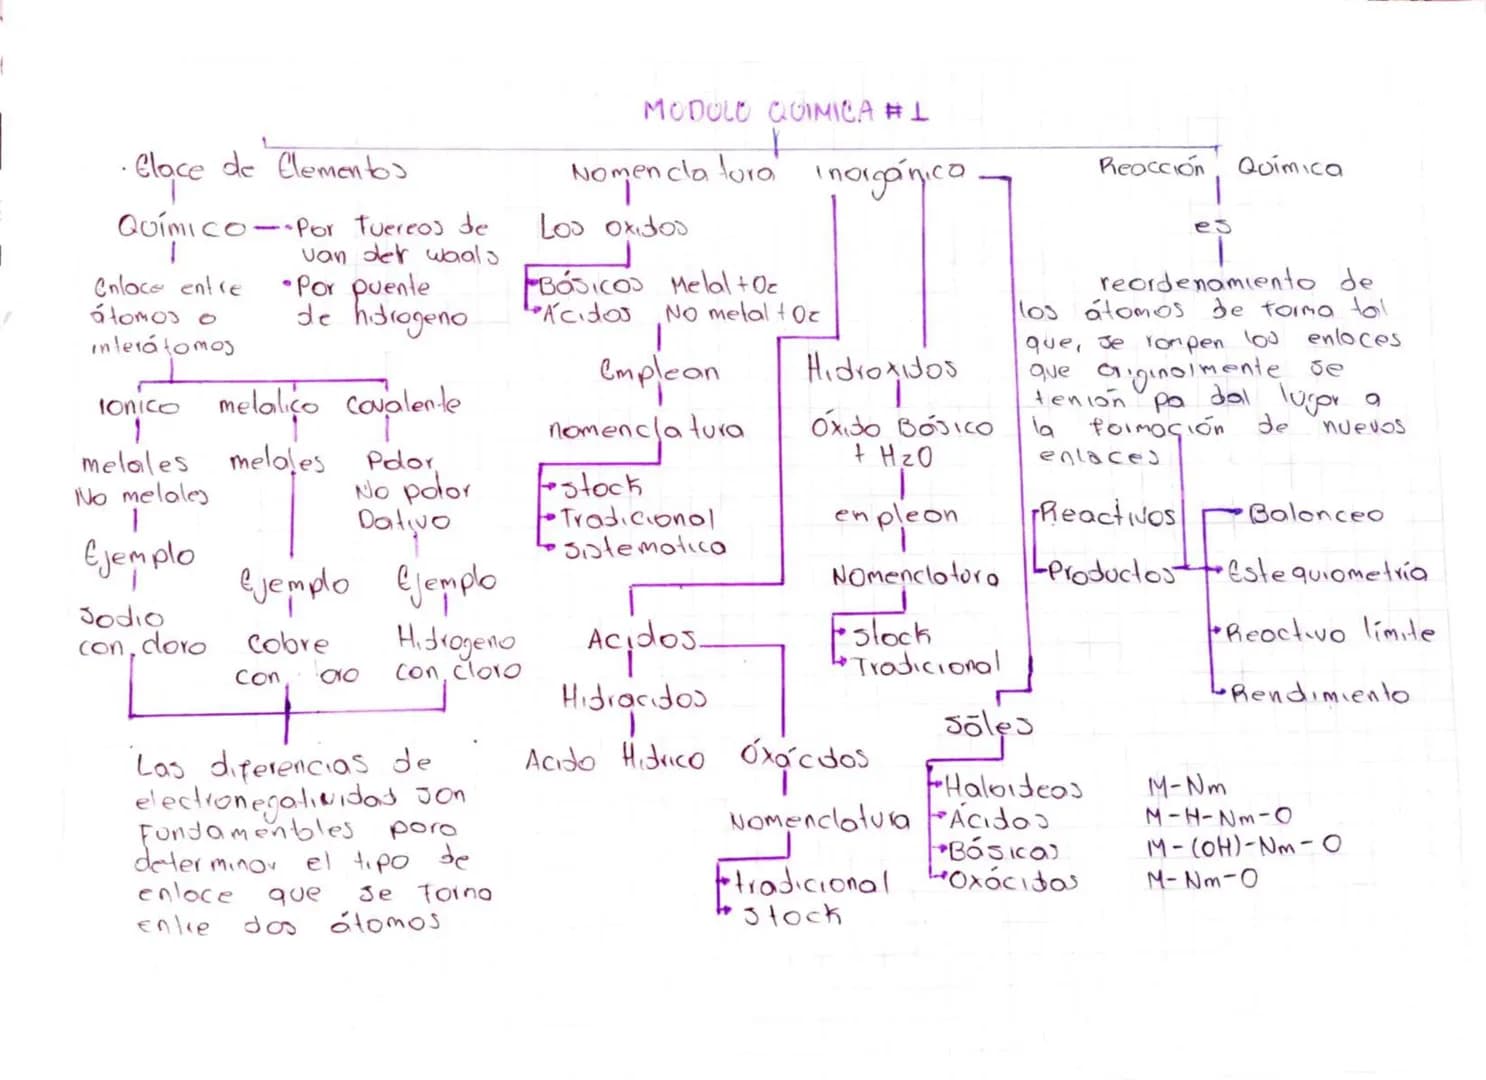 MODULO QUIMICA #1
· Elace de Elementos
Químico
· Por fuereos de
van der waals
• Por puente
de hidrogeno
Enlace entre
átomos o
interátomos
Ionico
metalico
Covalente
metales
No metales
metales
Polar
No polar
Dativo
Ejemplo
Ejemplo
Ejemplo
Sodio
con cloro
Cobre
con oro
Hidrogeno
con cloro
Las diferencias de
electronegatividas son
Fundamentbles para
determinar el tipo de
enlace que se forma
entre dos átomos
Nomenclatura inorgánico
Los oxidos
Básicos Metal + O2
Ácidos No metal + O2
Emplean
nomenclatura
stock
Tradicional
Sistematica
Acidos
Hidracidos
Acido Hidrico
Óxácdos
Nomenclatura
tradicional
stock
Hidroxidos
Óxido Básico
+ H2O
enpleon
Nomenclatora
stock
Tradicional
Sales
Haloideos M-Nm
Ácidas M-H-Nm-O
Básicas M-(OH)-Nm-O
Oxácidas M-Nm-O
Reacción Química
es
reordenamiento de
los átomos de forma tal
que, se rompen los enlaces
que originalmente se
tenión pa dal lugar a
la formación de nuevos
enlaces
Reactivos
Productos
Balanceo
Estequiometría
Reactivo límite
Rendimiento